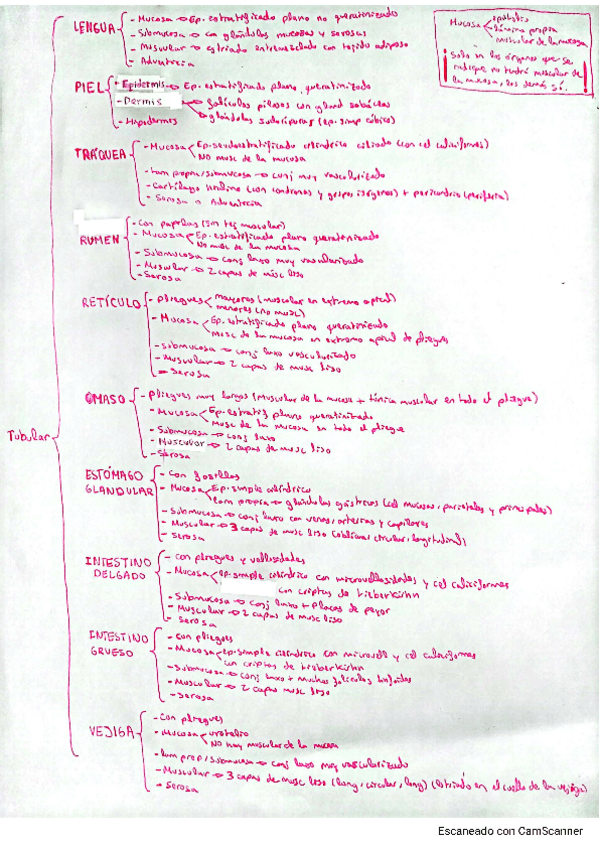 Mucosa epitelio
lámina propia
muscular de la mucosa
Solo en los órganos que se
indique no tendrá muscular de
la mucosa, los demás sí.
Tubular
LENGUA
- Mucosa → Ep. estratificado plano no queratinizado
- Submucosa → con glándulas mucosas y serosas
- Muscular → estriado entremezclado con tejido adiposo
- Adventicia
PIEL
- Epidermis → Ep. estratificado plano queratinizado
- Dermis → folículos pilosos con gland sebáceas
→ glándulas sudoríparas (ep. simp cúbico)
- Hipodermis
TRÁQUEA
- Mucosa Ep. seudoestratificado cilíndrico ciliado (con cel caliciformes)
NO musc de la mucosa
- lam propia/submucosa → conj muy vascularizado
- Cartílago hialino (con condronas y grupos isógenos) + pericondrio (periferia)
- Serosa o Adventicia
RUMEN
- Con papilas (sin tej muscular)
- Mucosa Ep. estratificado plano queratinizado
No musc de la mucosa
- Submucosa → conj laxo muy vascularizado
- Muscular → 2 capas de músc liso
- Serosa
RETÍCULO
- pliegues mayores (muscular en extremo apical)
menores (no musc)
- Mucosa Ep. estratificado plano queratinizado
Musc de la mucosa en extremo apical de pliegues
- Submucosa → conj laxo vascularizado
- Muscular → 2 capas de musc liso
- Serosa
OMASO
- Pliegues muy largos (Muscular de la mucosa + túnica muscular en todo el pliegue)
- Mucosa Ep. estratif plano queratinizado
Musc de la mucosa en todo el pliegue
- Submucosa → conj laxo
- Muscular → 2 capas de musc liso
- Serosa
ESTÓMAGO
GLANDULAR
- Con fosillas
- Mucosa Ep. simple cilíndrico
lam propia → glándulas gástricas (cel mucosas, parietales y principales)
- Submucosa → conj laxo con venas, arterias y capilares
- Muscular → 3 capas de musc liso (oblicua, circular, longitudinal)
- Serosa
INTESTINO
DELGADO
- con pliegues y vellosidades
- Mucosa ep. simple cilíndrico con microvellosidades y cel caliciformes
con criptas de Lieberkühn
- Submucosa → conj laxo + placas de peyer
- Muscular → 2 capas de musc liso
- Serosa
INTESTINO
GRUESO
- con pliegues
- Mucosa ep. simple cilíndrico con microvell y cel caliciformes
con criptas de Lieberkühn
- Submucosa → conj laxo + muchos folículos linfoides
- Muscular → 2 capas musc liso
- Serosa
VEJIGA
- Con pliegues
- Mucosa urotelio
NO hay muscular de la mucosa
- lam prop/submucosa → conj laxo muy vascularizado
- Muscular → 3 capas de musc liso (long, circular, long) (estriado en el cuello de la vejiga)
- Serosa
Escaneado con CamScanner